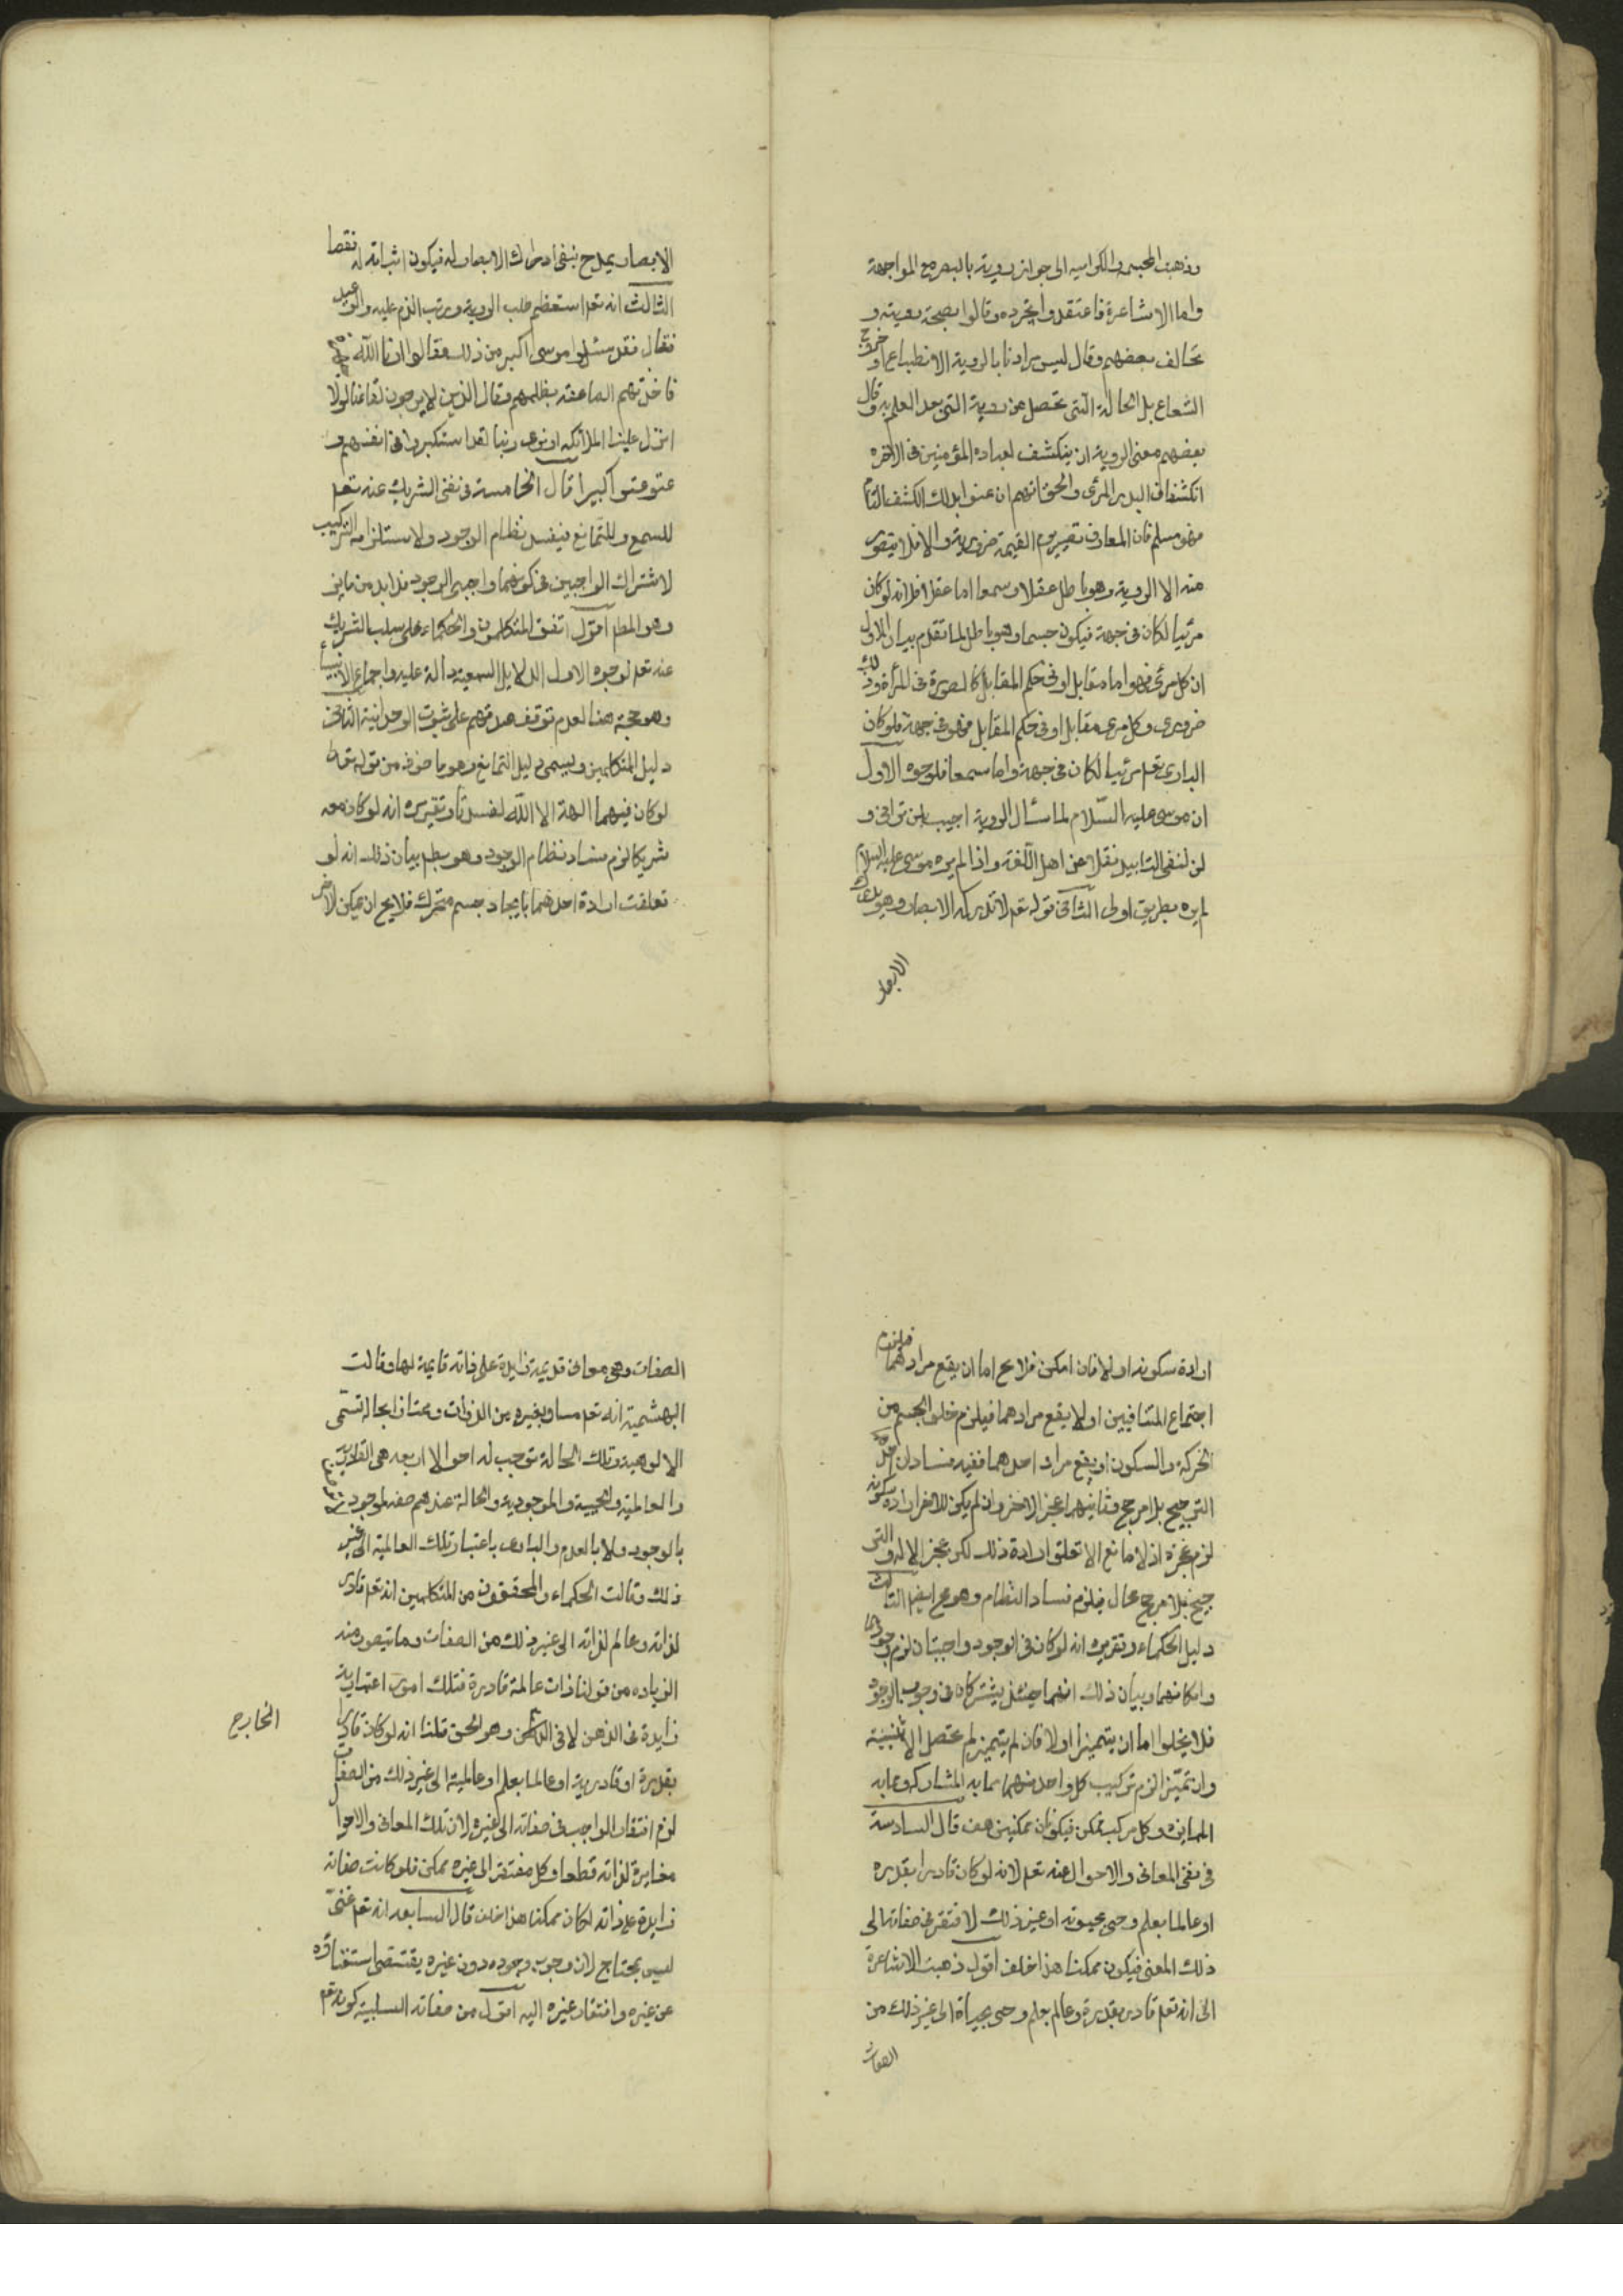 وذهبت المجسمه والكراميه الى جواز رويته بالبصر مع المواجهة
واما الاشاعرة فاعتقدوا تجرده وقالوا بصحة رويته و
تخالف بعضهم وقال ليس مرادنا بالروية الانطباع او خروج
الشعاع بل الحالة التى تحصل من روية الشى بعد العلم به وقال
بعضهم معنى الروية ان ينكشف لعباده المؤمنين فى الآخره
انكشاف البدر المرئى والحق انهم ان عنوا بذلك الكشف التام
فهو مسلم فان المعارف تصير يوم القيمة ضرورية والا فلا يتصور
منه الا الروية وهو باطل عقلا وسمعا اما عقلا فلانه لو كان
مرئيا لكان فى جهة فيكون جسما وهو باطل لما تقدم بيان الاول
ان كل مرئى فهو اما مقابل او فى حكم المقابل كالصورة فى المرأة وذلك
ضرورى وكل مرى مقابل او فى حكم المقابل فهو فى جهة فلو كان
البارى تعم مرئيا لكان فى جهة واما سمعا فلوجوه الاول
ان موسى عليه السّلام لما سئال الروية اجيب بلن ترانى و
لن لنفى التابيد نقلا عن اهل اللّغة واذا لم يره موسى عليه السلام
لم يره بطريق اولى الثانى قوله تعم لا تدركه الابصار وهو يدرك
الابصار
الابصار يمدح بنفى ادراك الابصار له فيكون اثباته له نقصا
الثالث انه تعم استعظم طلب الروية ورتب الذم عليه والوعيد
فقال فقد سئلوا موسى اكبر من ذلك فقالوا ارنا الله جهرة
فاخذتهم الصاعقة بظلمهم وقال الذين لا يرجون لقاءنا لولا
انزل علينا الملائكه او نرى ربنا لقد استكبروا فى انفسهم و
عتو عتوا كبيرا قال الخامسة فى نفى الشريك عنه تعم
للسمع وللتمانع فيفسد نظام الوجود ولاستلزامه التركيب
لاشتراك الواجبين فى كونهما واجبى الوجود فلابد من مايز
وهو المطم اقول اتفق المتكلمون والحكماء على سلب الشريك
عنه تعم لوجوه الاول الدلايل السمعية دالة عليه واجماع الانبياء
وهو حجة هنا لعدم توقف صدقهم على ثبوت الوحدانية الثانى
دليل المتكلمين ويسمى دليل التمانع وهو ماخوذ من قوله تعم
لو كان فيهما الهة الا الله لفسدتا وتقريره انه لو كان معه
شريكا لزم فساد نظام الوجود وهو بطم بيان ذلك انه لو
تعلقت ارادة احدهما بايجاد جسم متحرك فلا يخ ان يمكن الاخر
ارادة سكونه او لا فان امكن فلا يخ اما ان يقع مرادهما فيلزم
اجتماع المتنافيين او لا يقع مرادهما فيلزم خلو الجسم من
الحركة والسكون او يقع مراد احدهما ففيه فسادان احدهما
الترجيح بلا مرجح وثانيهما عجز الاخر وان لم يكن للاخر ارادة سكونه
لزم عجزه اذ لا مانع الا تعلق ارادة ذلك لكن عجز الاله والتر
جيح بلا مرجح محال فيلزم فساد النظام وهو مح ايضا الثالث
دليل الحكماء وتقريره انه لو كان فى الوجود واجبتان لزم
وامكانهما وبيان ذلك انهما حينئذ يشتركان فى وجوب الوجود
فلا يخلوا اما ان يتميزا او لا فان لم يتميز لم تحصل الاثنينية
وان تميّزا لزم تركيب كل واحد منهما مما به المشاركه ومما به
الممايزه وكل مركب ممكن فيكونان ممكنين هف قال السادسة
فى نفى المعانى والاحوال عنه تعم لانه لو كان قادرا بقدره
او عالما بعلم وحى بحيوته او غير ذلك لافتقر فى صفاته الى
ذلك المعنى فيكون ممكنا هذا خلف اقول ذهبت الاشاعرة
الى انه تعم قادر بقدرة وعالم بعلم وحى بحياة الى غير ذلك من
الصفات
الصفات وهى معانى قديمة زايدة على ذاته قايمة لها وقالت
البهشمية انه تعم مساو بغيره من الذوات وممتاز بحالة تسمّى
الالوهية وتلك الحالة توجب له احوالا اربعه هى القادرية
والعالمية والحيية والموجودية والحالة عندهم صفه لموجود
بالوجود ولا بالعدم والبارى باعتبار تلك العالمية الى غير
ذلك وقالت الحكماء والمحققون من المتكلمين انه تعم قادر
لذاته وعالم لذاته الى غير ذلك من الصفات وما يتصور منه
الزياده من قولنا ذات عالمة قادرة فتلك امور اعتبارية
زايدة فى الذهن لا فى وهو الحق قلنا انه لو كان قادرا
الخارج
بقدرة او قادرية او عالما بعلم او عالمية الى غير ذلك من الصفات
لزم افتقار الواجب فى صفاته الى غيره لان تلك المعانى والاحوال
مغايرة لذاته قطعا وكل مفتقر الى غيره ممكن فلو كانت صفاته
زايدة على ذاته لكان ممكنا هذا خلف قال السابعه انه تعم غنىّ
ليس بمحتاج لان وجوب وجوده دون غيره يقتضى استغناؤه
عن غيره وافتقار غيره اليه اقول من صفاته السلبية كونه تعم